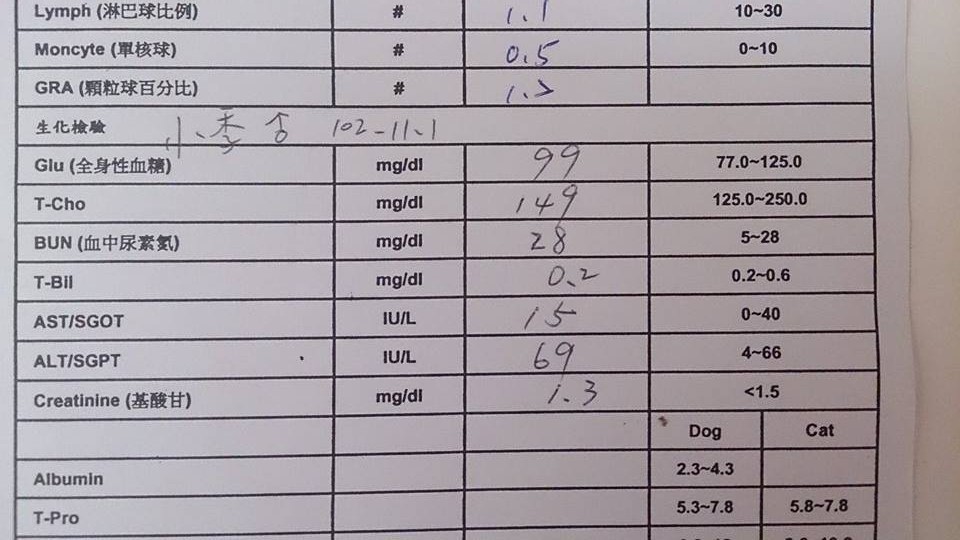 Lymph (淋巴球比例) # 1.1 10~30
Moncyte (單核球) # 0.5 0~10
GRA (顆粒球百分比) # 1.3
生化檢驗 小 102-11.1
Glu (全身性血糖) mg/dl 99 77.0~125.0
T-Cho mg/dl 149 125.0~250.0
BUN (血中尿素氮) mg/dl 28 5~28
T-Bil mg/dl 0.2 0.2~0.6
AST/SGOT IU/L 15 0~40
ALT/SGPT IU/L 69 4~66
Creatinine (基酸甘) mg/dl 1.3 <1.5
Dog Cat
Albumin 2.3~4.3
T-Pro 5.3~7.8 5.8~7.8